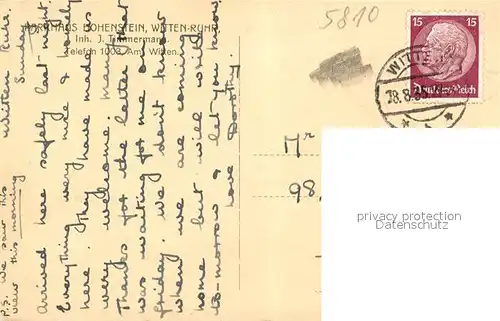 PARKHAUS HOHENSTEIN, WITTEN-RUHR
Inh. J. Timmermann
Telefon 1003 Amt Witten
5810
15 15
Deutsches Reich
WITTEN
Witten Ruhr.
Sunday
Arrived here safely last night
Everything very nice & homely
here. They have made us
very welcome. Many
Thanks for the letter that
was waiting for me on
Friday. We don't know
when we are coming
home but will write
to-morrow & let you know
love Dorothy
P.S. We saw this
view this morning
Mr
98,
privacy protection
Datenschutz